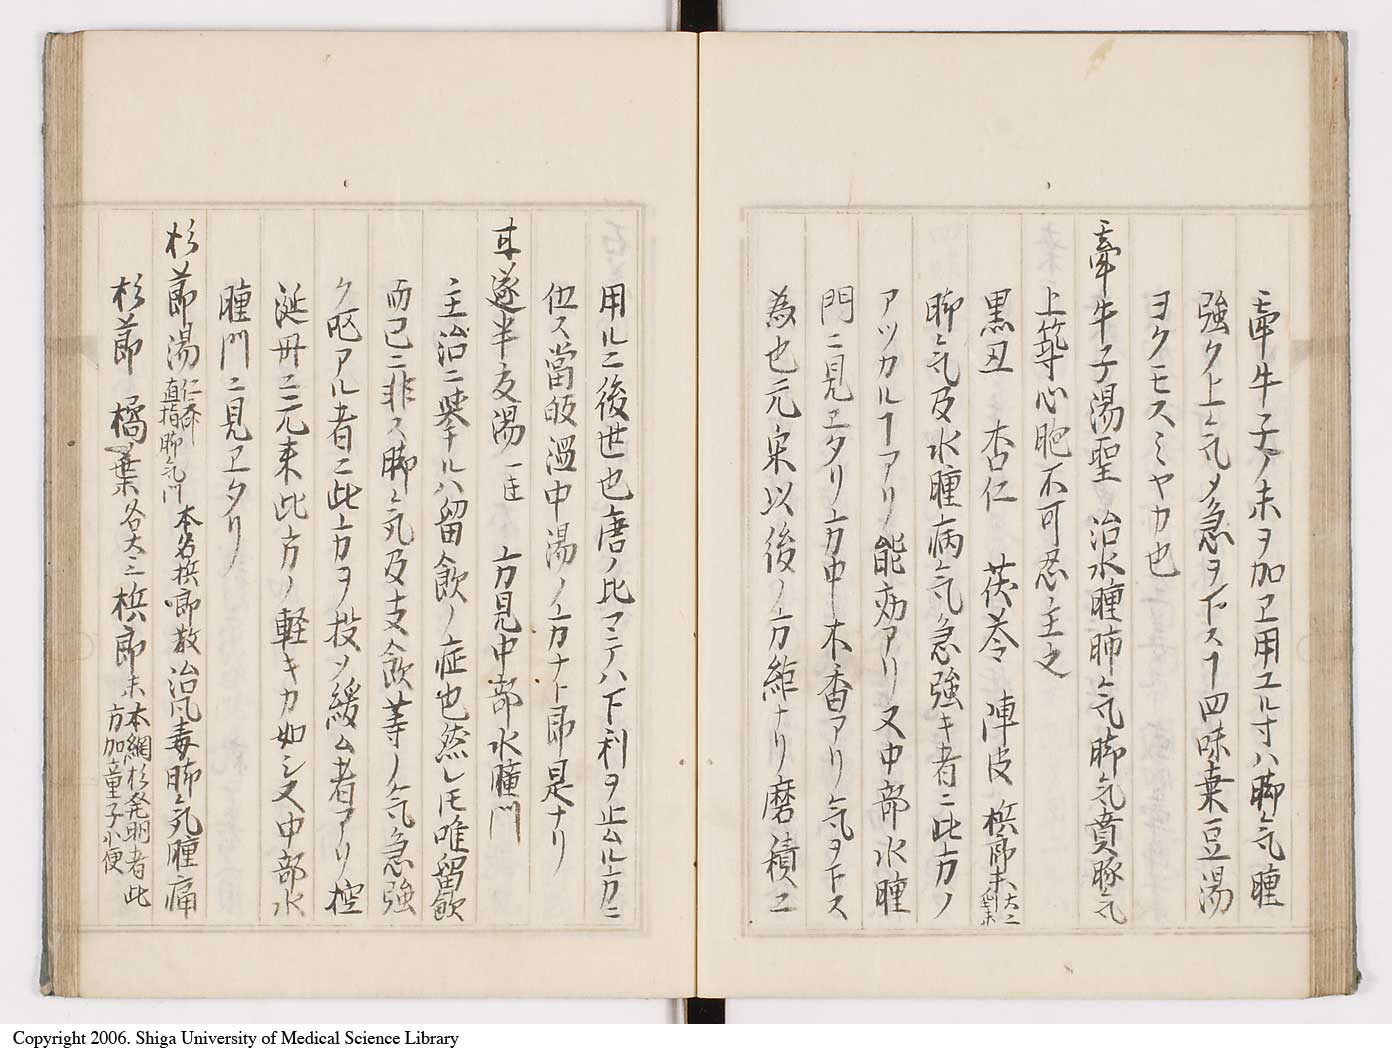 牽牛子ノ末ヲ加ヱ用ユル寸ハ脚气腫
強ク上气メ急ヲ下スヿ四味葉豆湯
ヨクモスミヤカ也
牽牛子湯聖 治水腫肺气脚气賁豚气
上築心胞不可忍主之
黒丑 杏仁 茯苓 陣皮 梹郎末大二
脚气及水腫病气急強キ者ニ此方ノ
アツカルヿアリ能効アリ又中部水腫
門ニ見ヱタリ方中木香アリ气ヲ下ス
為也元宋以後ノ方縡ナリ磨積ニ
用ルニ後世也唐ノ比マテハ下利ヲ止ムル方ニ
位ス當皈温中湯ノ方ナト即是ナリ
甘遂半夏湯 方見中部水腫門
主治ニ挙ルハ留飲ノ症也然レ𪜈唯留飲
而已ニ非ス脚气及支飲等ノ气急強
ク咳アル者ニ此方ヲ投メ緩ム者アリ控
涎丹ニ元来此方ノ軽キカ如シ又中部水
腫門ニ見ヱタリ
杉莭湯 仁斎直指脚气門 本名梹郎散治风毒脚气腫痛
杉莭 橘葉各大三 梹郎末 本綱杉発明者此方加童子小便